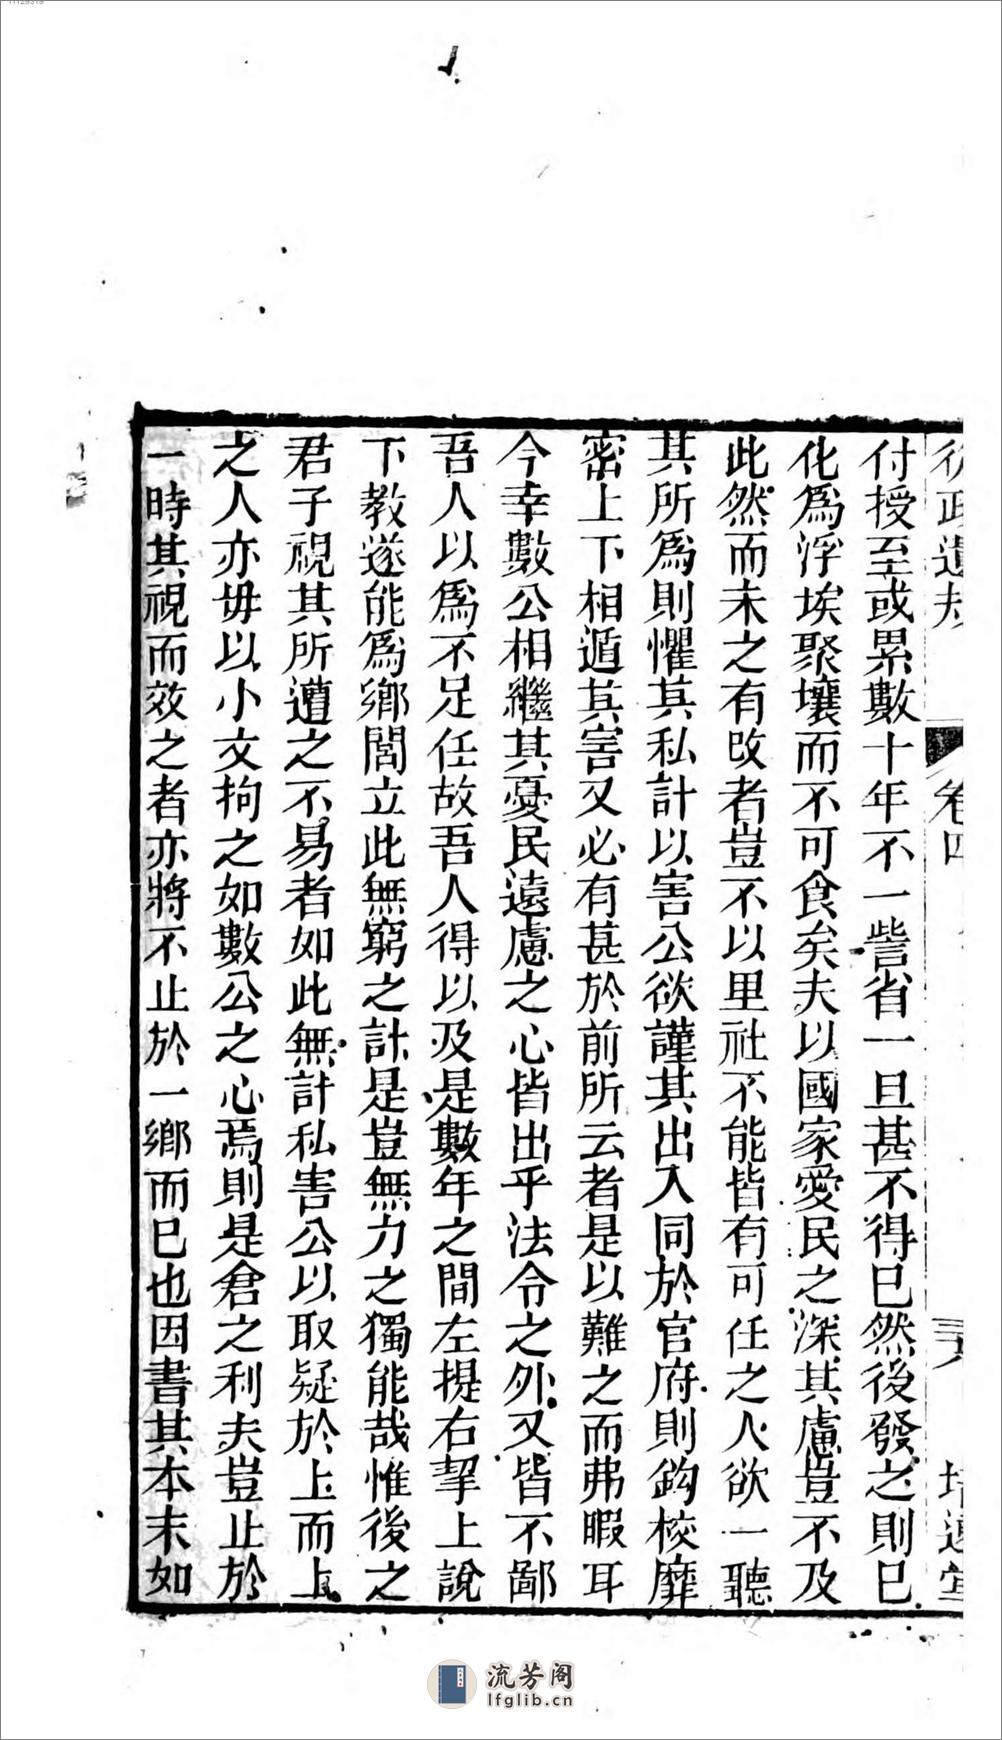 付授至或累數十年不一訾省一旦甚不得巳然後發之則巳
化爲浮埃聚壤而不可食矣夫以國家愛民之深其慮豈不及
此然而未之有改者豈不以里社不能皆有可任之人欲一聽
其所爲則懼其私計以害公欲謹其出入同於官府則鈎校靡
密上下相遁其害又必有甚於前所云者是以難之而弗暇耳
今幸數公相繼其憂民遠慮之心皆出乎法令之外又皆不鄙
吾人以爲不足任故吾人得以及是數年之間左提右挈上說
下教遂能爲鄉閭立此無窮之計是豈無力之獨能哉惟後之
君子視其所遭之不易者如此無計私害公以取疑於上而上
之人亦毋以小文拘之如數公之心焉則是倉之利夫豈止於
一時其視而效之者亦將不止於一鄉而巳也因書其本末如
從政遺規
卷四
培遠堂
流芳阁
lfglib.cn